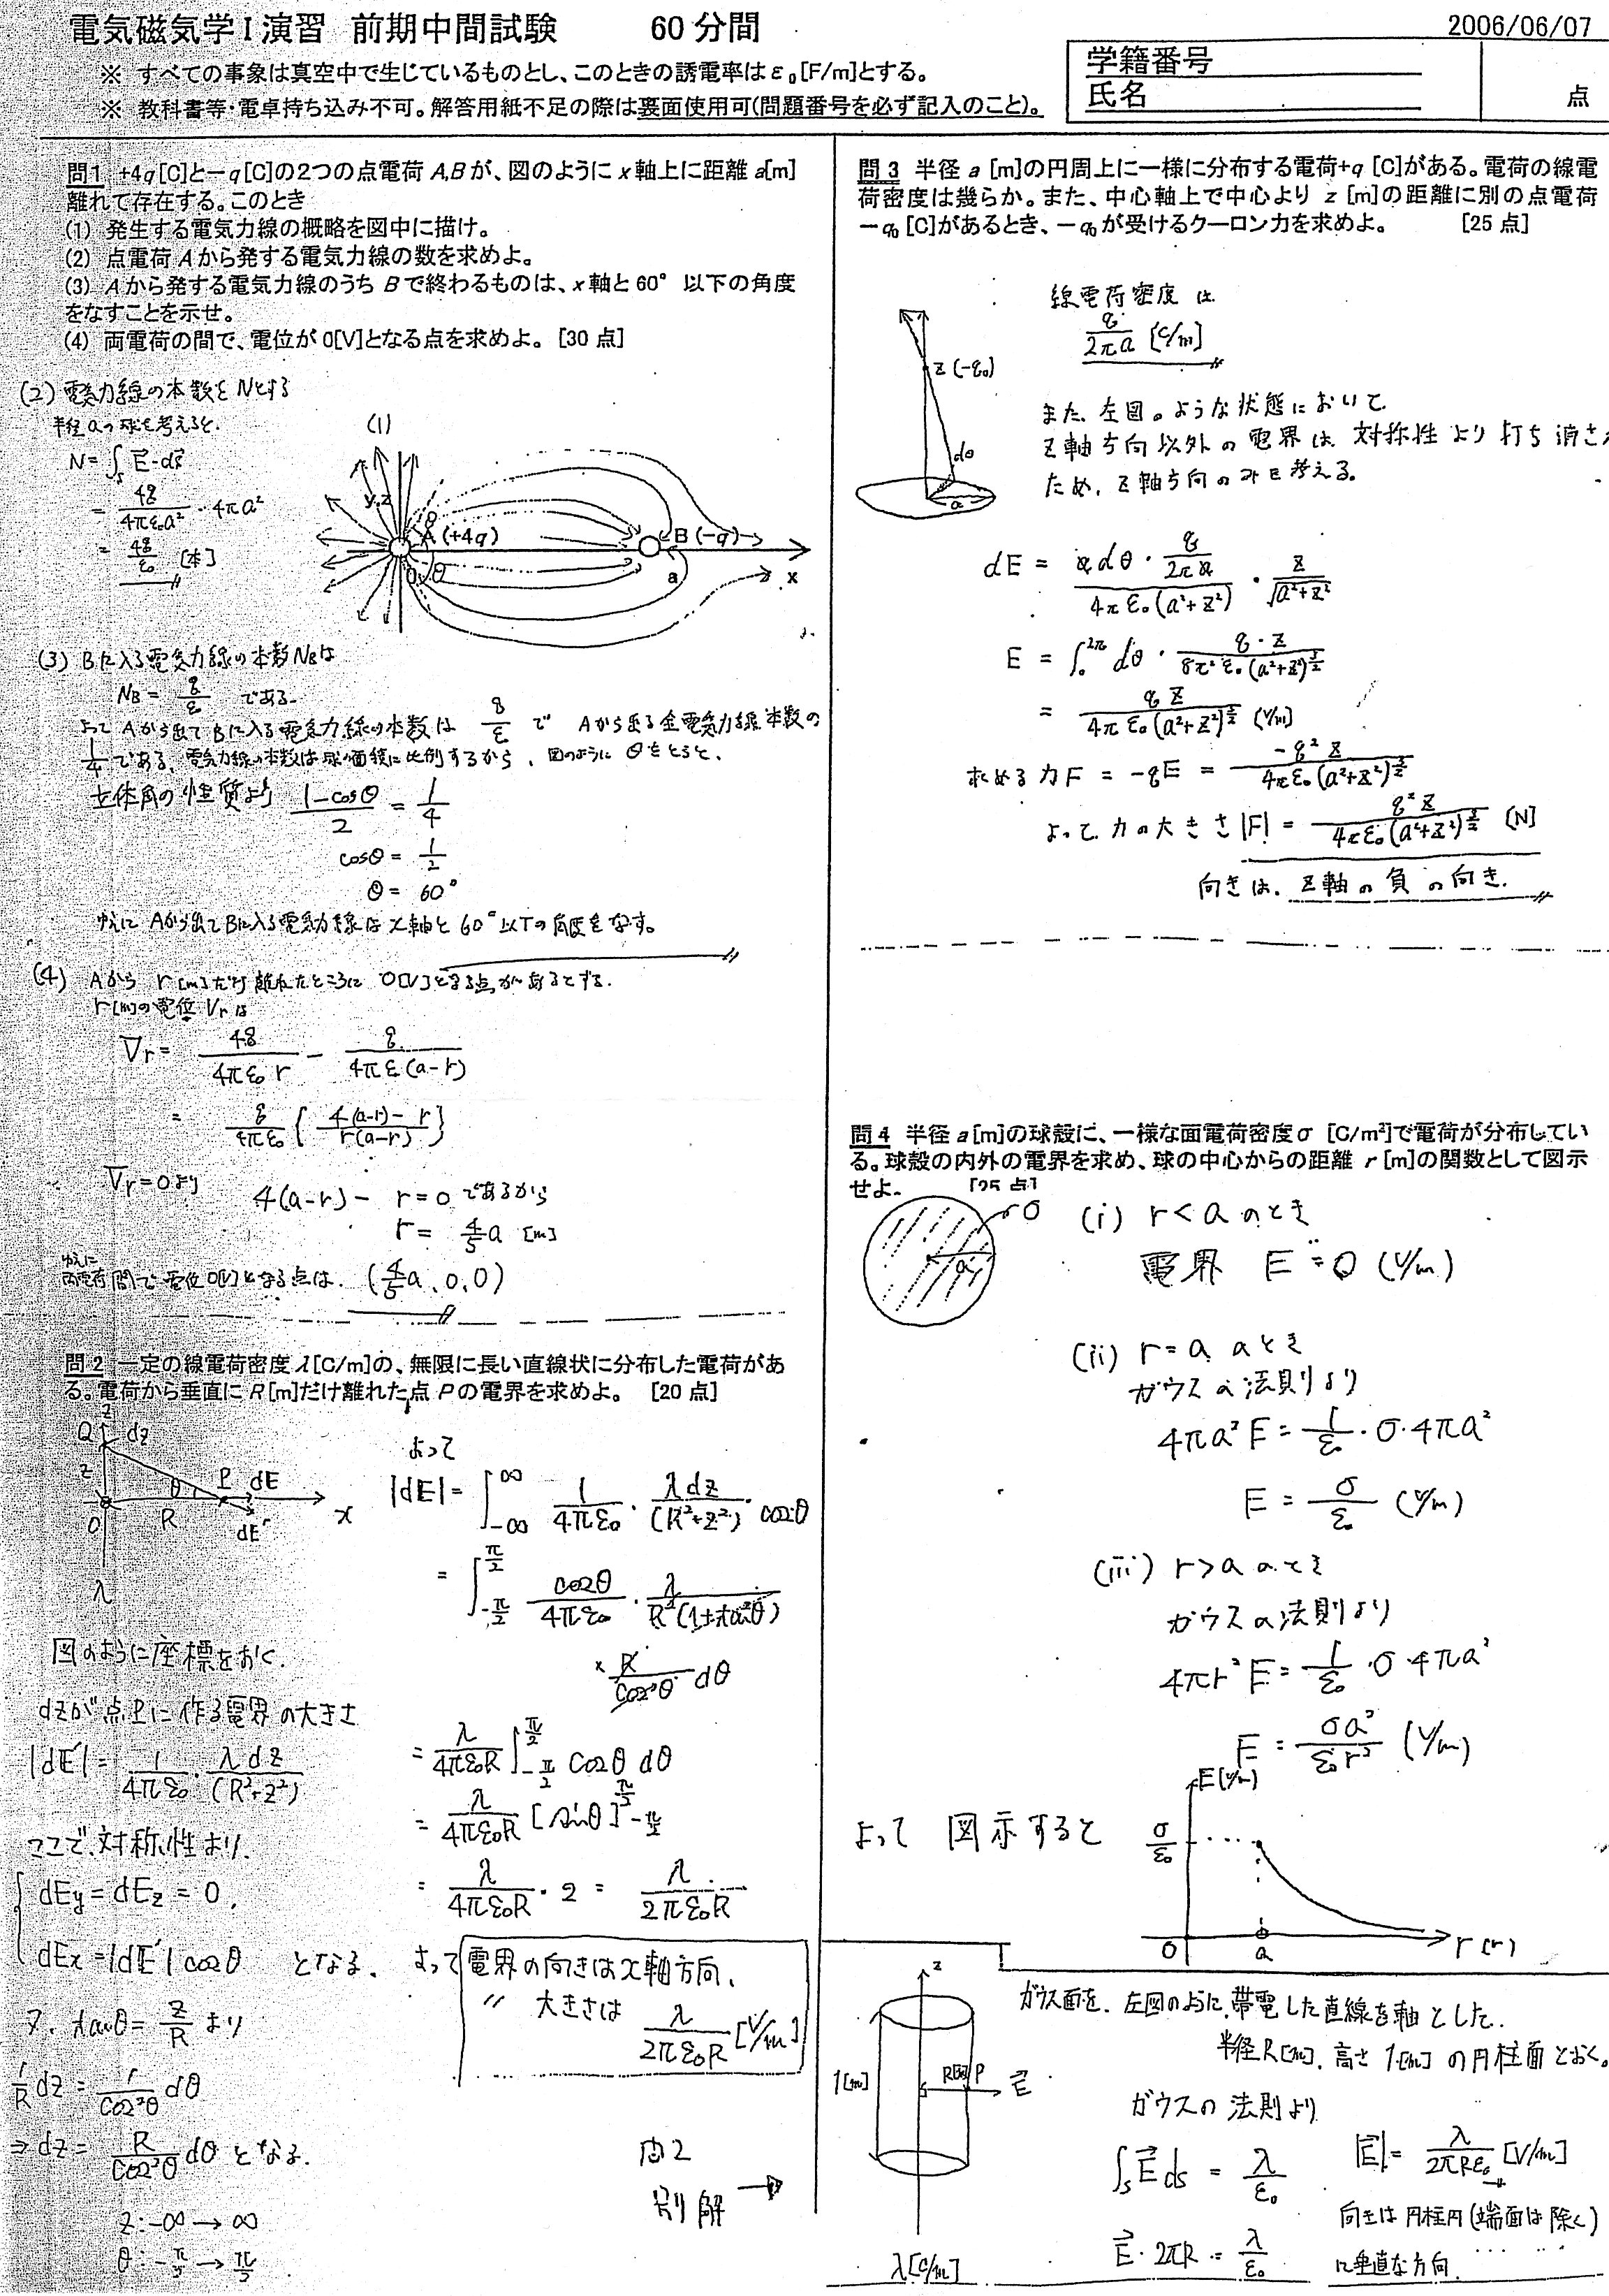 電気磁気学Ⅰ演習 前期中間試験 60分間
2006/06/07
※ すべての事象は真空中で生じているものとし、このときの誘電率はε₀[F/m]とする。
※ 教科書等・電卓持ち込み不可。解答用紙不足の際は裏面使用可(問題番号を必ず記入のこと)。
学籍番号
氏名
点
問1 +4q[C]と−q[C]の2つの点電荷A,Bが、図のようにx軸上に距離a[m]
離れて存在する。このとき
(1) 発生する電気力線の概略を図中に描け。
(2) 点電荷Aから発する電気力線の数を求めよ。
(3) Aから発する電気力線のうちBで終わるものは、x軸と60°以下の角度
をなすことを示せ。
(4) 両電荷の間で、電位が0[V]となる点を求めよ。[30点]
(2) 電気力線の本数をNとする
半径aの球を考えると.
N = ∫s E·ds
= 4q/4πε₀a² · 4πa²
= 4q/ε₀ [本]
(1)
y,z
θ
A(+4q)
B(−q)
θ
a
x
(3) Bに入る電気力線の本数NBは
NB = q/ε である.
よってAから出てBに入る電気力線の本数は q/ε で Aから出る全電気力線本数の
1/4である。電気力線の本数は球の面積に比例するから、図のようにθをとると、
立体角の性質より (1−cosθ)/2 = 1/4
cosθ = 1/2
θ = 60°
ゆえに Aから出てBに入る電気力線はx軸と60°以下の角度をなす。
(4) Aから r[m]だけ離れたところに 0[V]となる点があるとする.
r[m]の電位Vrは
Vr = 4q/4πε₀r − q/4πε(a−r)
= q/4πε₀ { (4(a−r)−r)/r(a−r) }
Vr=0より 4(a−r)− r=0 であるから
r = 4/5 a [m]
ゆえに
両電荷間で電位0[V]となる点は. (4/5a, 0, 0)
問2 一定の線電荷密度λ[C/m]の、無限に長い直線状に分布した電荷があ
る。電荷から垂直にR[m]だけ離れた点Pの電界を求めよ。 [20点]
z
Q
dz
z
θ
P
dE
O
R
x
dE'
λ
図のように座標をおく.
dzが点Pに作る電界の大きさ
|dE'| = 1/4πε₀ · λdz/(R²+z²)
ここで、対称性より.
dEy = dEz = 0.
dEx = |dE'| cosθ となる.
又、tanθ = z/R より
1/R dz = 1/cos²θ dθ
⇒ dz = R/cos²θ dθ となる.
z: −∞ → ∞
θ: −π/2 → π/2
よって
|dE| = ∫−∞^∞ 1/4πε₀ · λdz/(R²+z²) · cosθ
= ∫−π/2^π/2 cosθ/4πε₀ · λ/R²(1+tan²θ)
× R/cos²θ dθ
= λ/4πε₀R ∫−π/2^π/2 cosθ dθ
= λ/4πε₀R [sinθ]−π/2^π/2
= λ/4πε₀R · 2 = λ/2πε₀R
よって 電界の向きはx軸方向、
〃 大きさは λ/2πε₀R [V/m]
問2
別解 →
問3 半径a [m]の円周上に一様に分布する電荷+q [C]がある。電荷の線電
荷密度は幾らか。また、中心軸上で中心より z [m]の距離に別の点電荷
−q₀ [C]があるとき、−q₀が受けるクーロン力を求めよ。 [25点]
z(−q₀)
dθ
a
線電荷密度は
q/2πa [C/m]
また、左図のような状態において
z軸方向以外の電界は 対称性より打ち消され
ため、z軸方向のみを考える。
dE = a dθ · q/2πa / 4πε₀(a²+z²) · z/√a²+z²
E = ∫₀^2π dθ · q·z/8π²ε₀(a²+z²)^3/2
= qz/4πε₀(a²+z²)^3/2 (V/m)
求める力F = −qE = −q²z/4πε₀(a²+z²)^3/2
よって力の大きさ|F| = q²z/4πε₀(a²+z²)^3/2 [N]
向きは、z軸の負の向き.
問4 半径a[m]の球殻に、一様な面電荷密度σ [C/m²]で電荷が分布してい
る。球殻の内外の電界を求め、球の中心からの距離 r[m]の関数として図示
せよ。 [25点]
σ
a
(i) r<a のとき
電界 E = 0 (V/m)
(ii) r=a のとき
ガウスの法則より
4πa²E = 1/ε₀ · σ·4πa²
E = σ/ε₀ (V/m)
(iii) r>a のとき
ガウスの法則より
4πr²E = 1/ε₀ · σ·4πa²
E = σa²/ε₀r² (V/m)
よって 図示すると
E(V/m)
σ/ε₀
0
a
r(m)
z
1[m]
R[m]
P
E
λ[C/m]
ガウス面を、左図のように、帯電した直線を軸とした.
半径R[m]、高さ1[m]の円柱面とおく。
ガウスの法則より
∫s E ds = λ/ε₀
E · 2πR = λ/ε₀
|E| = λ/2πRε₀ [V/m]
向きは円柱円(端面は除く)
に垂直な方向.